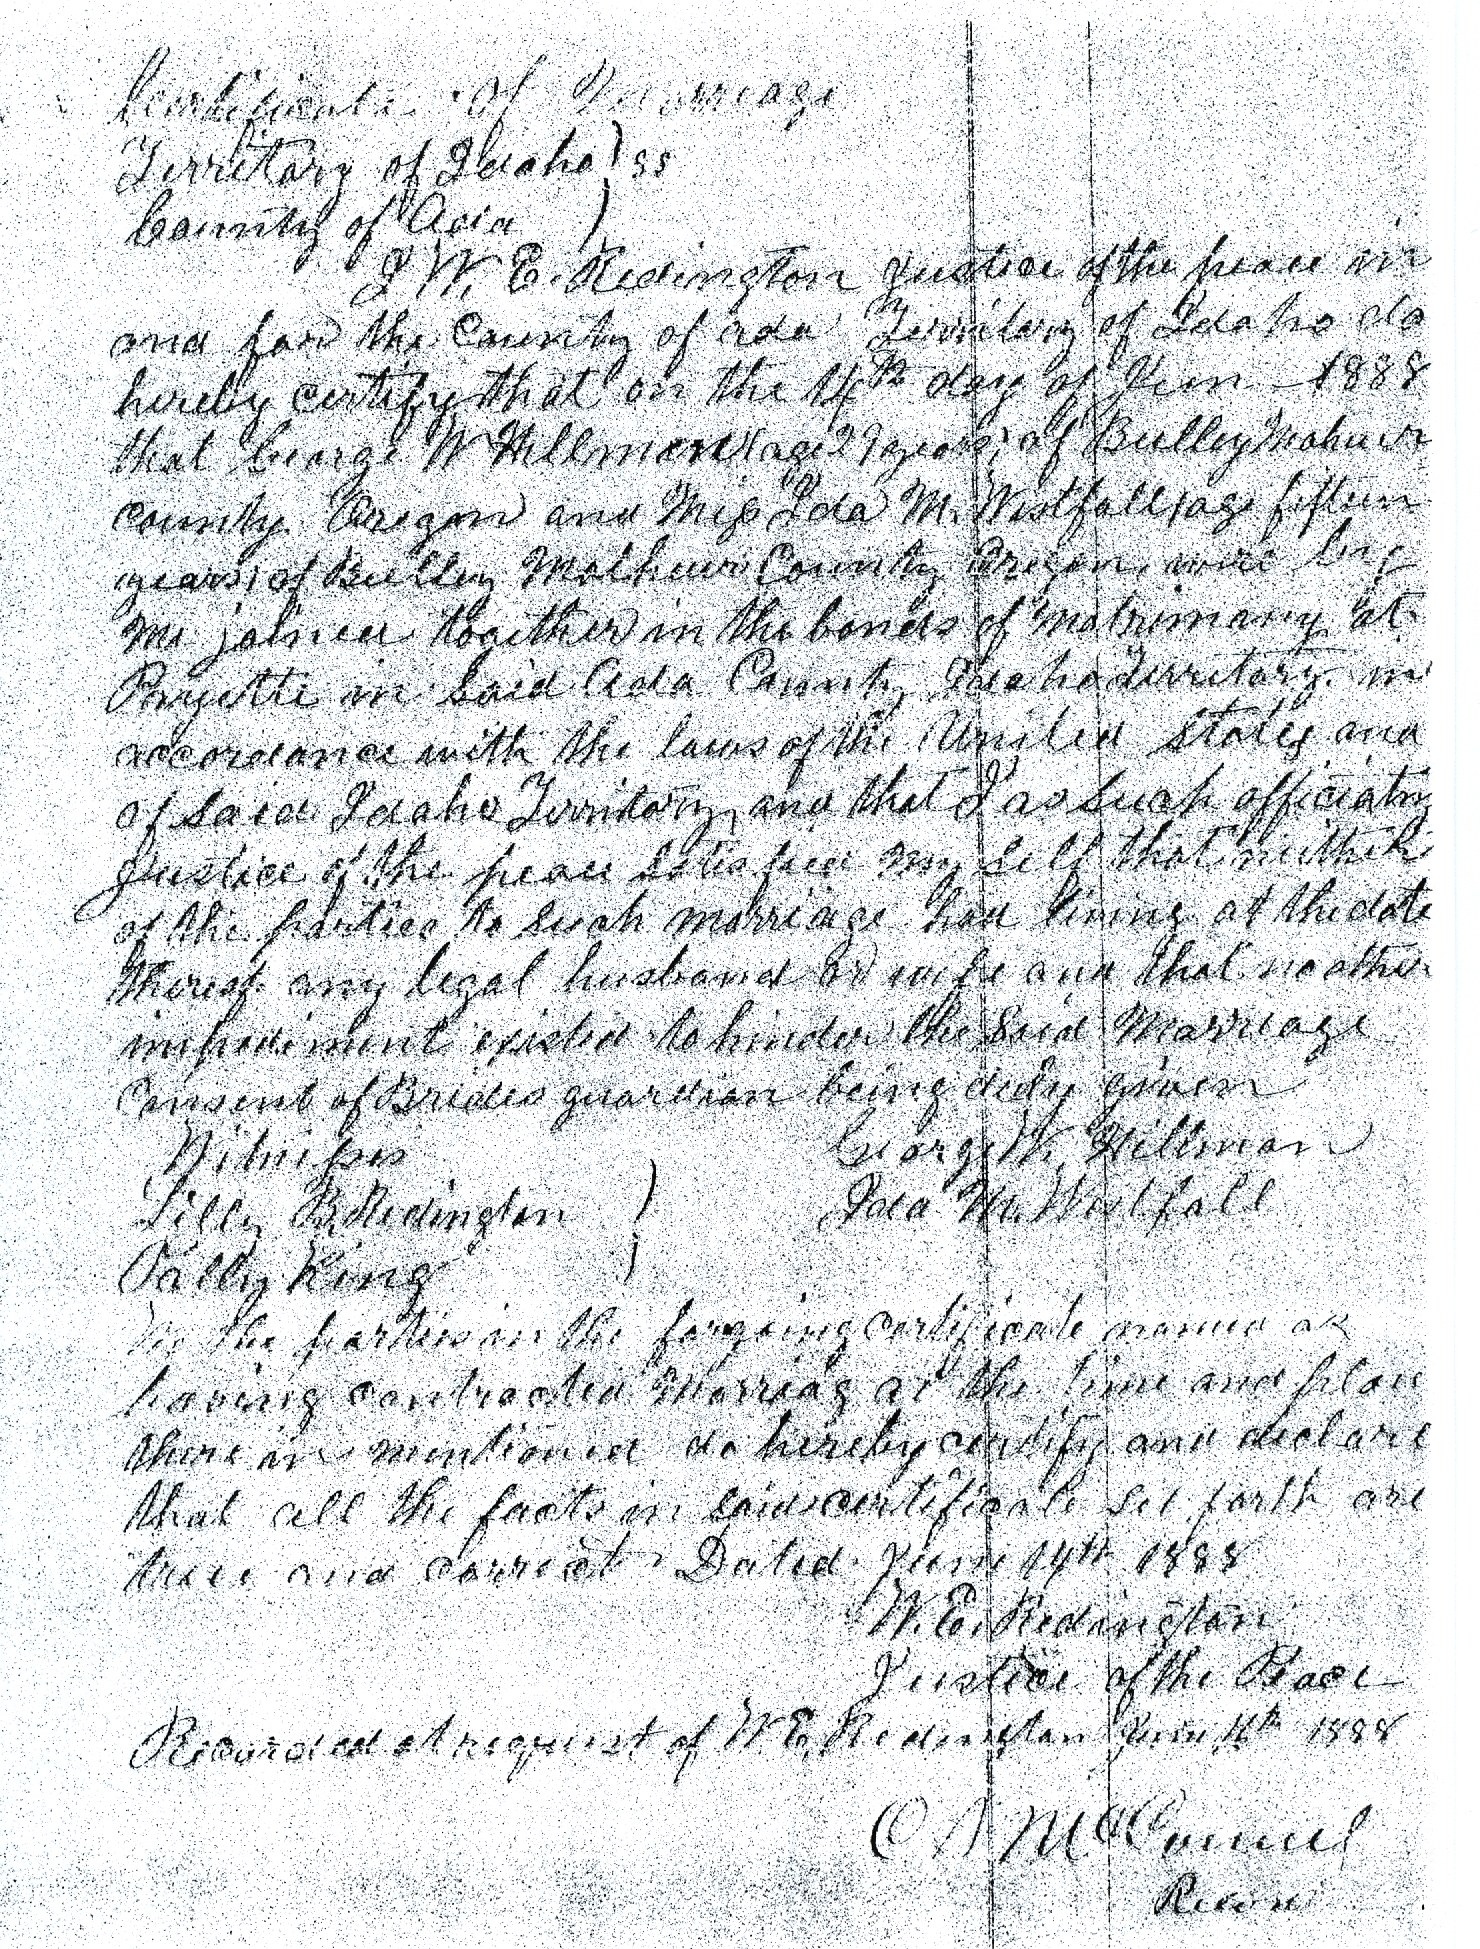 Certificate of Marriage
Territory of Idaho ) ss
County of Ada )
I W. E. Redington Justice of the peace in
and for the County of Ada Territory of Idaho do
hereby certify that on the 14th day of June 1888
that George W Hillman (age 29 years) of Bulley Malheur
county Oregon and Miss Ida M. Westfall (age fifteen
years) of Bulley Malheur County Oregon were by
me joined together in the bonds of matrimony at
Payette in said Ada County Idaho Territory in
accordance with the laws of the United States and
of said Idaho Territory, and that I as such officiating
justice of the peace satisfied my self that neither
of the parties to such marriage had living at the date
thereof any legal husband or wife and that no other
impediment existed to hinder the said Marriage
Consent of Brides guardian being duly given
Witnesses George W. Hillman
Lilly B. Redington ) Ida M. Westfall
King )
We the parties in the forgoing certificate named as
having contracted Marriag at the time and place
there in mentioned do hereby certify and declare
that all the facts in said certificate set forth are
true and correct Dated June 14th 1888
W. E. Redington
Justice of the Peace
Recorded at request of W E. Redington June 1888
McConnel